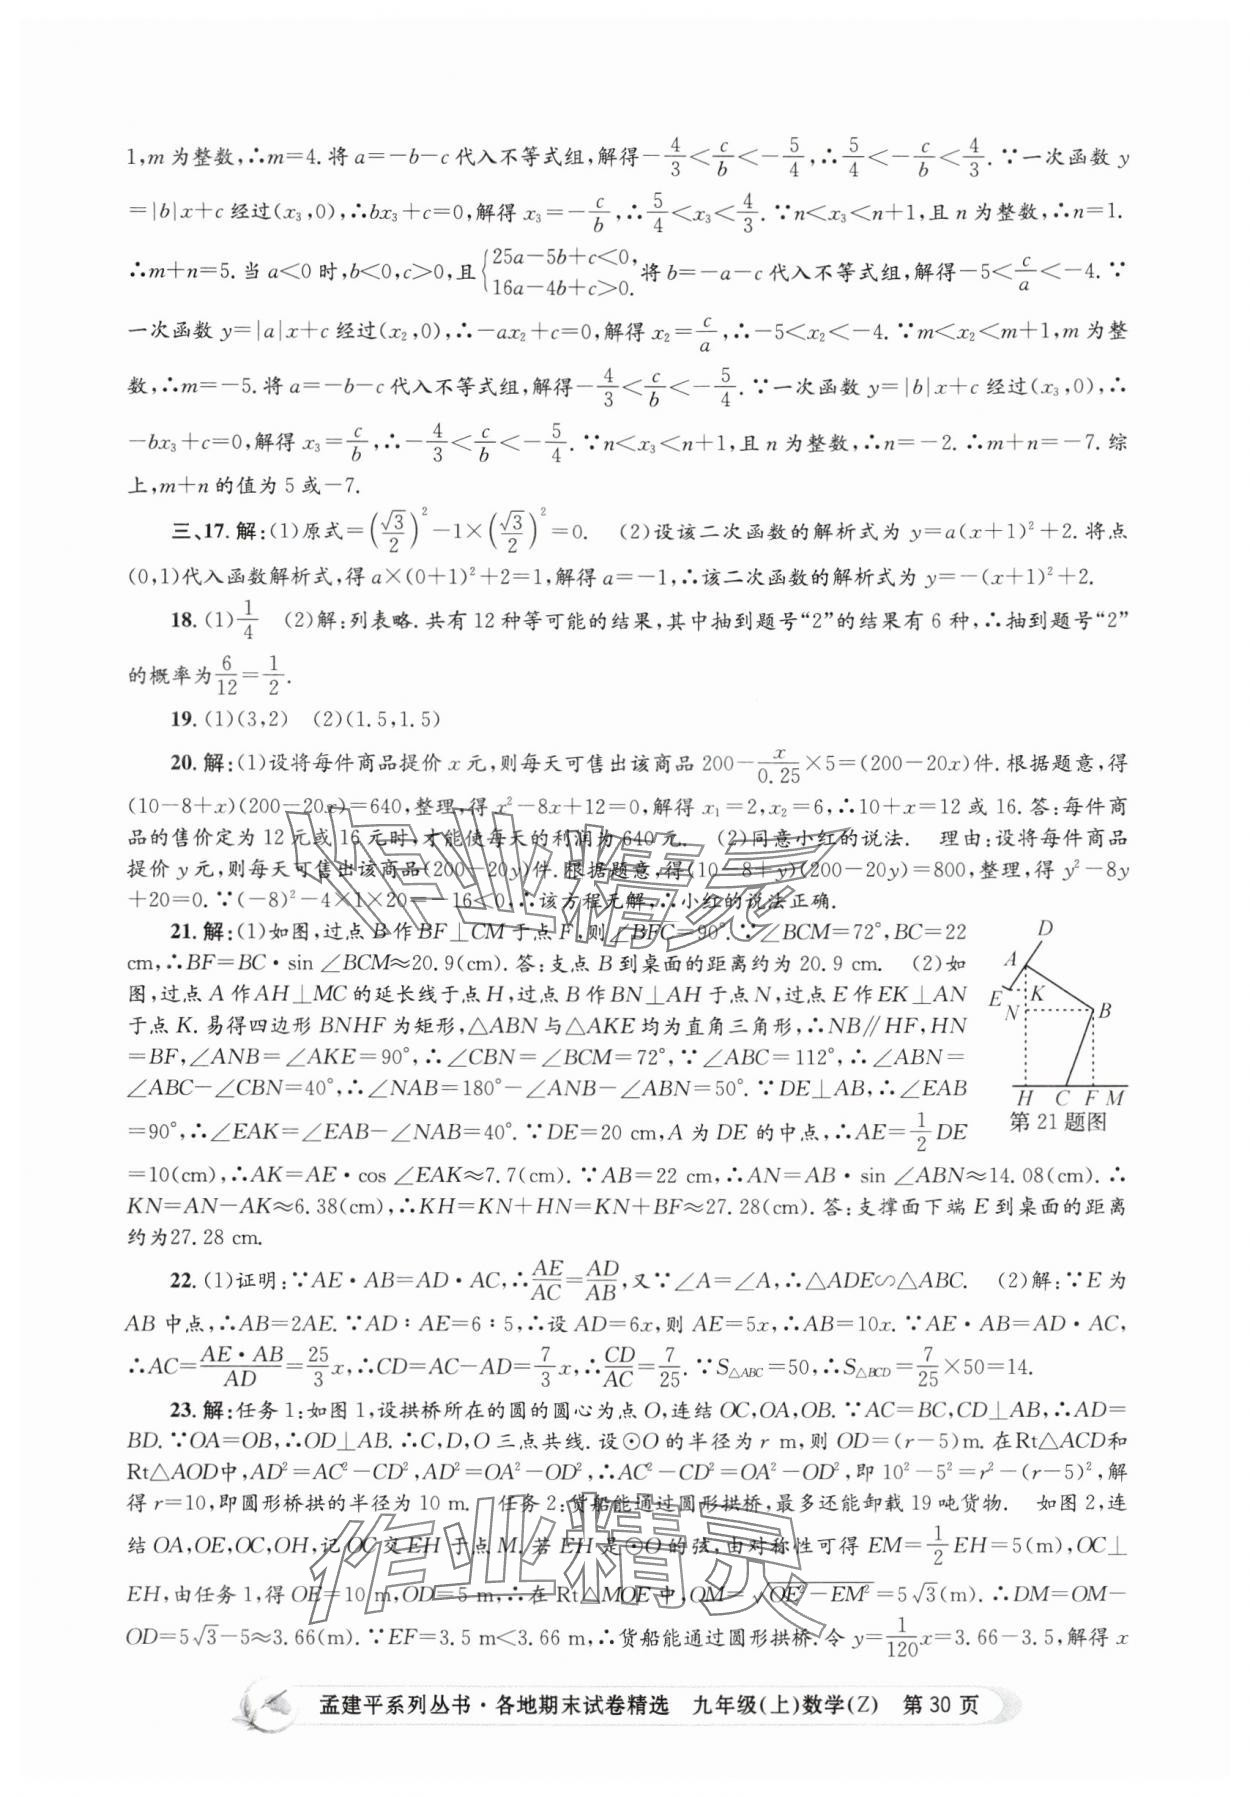 1,m为整数,∴m=4.将a=-b-c代入不等式组,解得-4/3<c/b<-5/4,∴5/4<-c/b<4/3.∵一次函数y
=|b|x+c经过(x₃,0),∴bx₃+c=0,解得x₃=-c/b,∴5/4<x₃<4/3.∵n<x₃<n+1,且n为整数,∴n=1.
∴m+n=5.当a<0时,b<0,c>0,且{25a-5b+c<0, 16a-4b+c>0.将b=-a-c代入不等式组,解得-5<c/a<-4.∵
一次函数y=|a|x+c经过(x₂,0),∴-ax₂+c=0,解得x₂=c/a,∴-5<x₂<-4.∵m<x₂<m+1,m为整
数,∴m=-5.将a=-b-c代入不等式组,解得-4/3<c/b<-5/4.∵一次函数y=|b|x+c经过(x₃,0),∴
-bx₃+c=0,解得x₃=c/b,∴-4/3<c/b<-5/4.∵n<x₃<n+1,且n为整数,∴n=-2.∴m+n=-7.综
上,m+n的值为5或-7.
三、17.解:(1)原式=(√3/2)²-1×(√3/2)²=0. (2)设该二次函数的解析式为y=a(x+1)²+2.将点
(0,1)代入函数解析式,得a×(0+1)²+2=1,解得a=-1,∴该二次函数的解析式为y=-(x+1)²+2.
18.(1)1/4 (2)解:列表略.共有12种等可能的结果,其中抽到题号“2”的结果有6种,∴抽到题号“2”
的概率为6/12=1/2.
19.(1)(3,2) (2)(1.5,1.5)
20.解:(1)设将每件商品提价x元,则每天可售出该商品200-x/0.25×5=(200-20x)件.根据题意,得
(10-8+x)(200-20x)=640,整理,得x²-8x+12=0,解得x₁=2,x₂=6,∴10+x=12或16.答:每件商
品的售价定为12元或16元时,才能使每天的利润为640元. (2)同意小红的说法. 理由:设将每件商品
提价y元,则每天可售出该商品(200-20y)件.根据题意,得(10-8+y)(200-20y)=800,整理,得y²-8y
+20=0.∵(-8)²-4×1×20=-16<0,∴该方程无解,∴小红的说法正确.
21.解:(1)如图,过点B作BF⊥CM于点F,则∠BFC=90°.∵∠BCM=72°,BC=22
cm,∴BF=BC·sin∠BCM≈20.9(cm).答:支点B到桌面的距离约为20.9 cm. (2)如
图,过点A作AH⊥MC的延长线于点H,过点B作BN⊥AH于点N,过点E作EK⊥AN
于点K.易得四边形BNHF为矩形,△ABN与△AKE均为直角三角形,∴NB∥HF,HN
=BF,∠ANB=∠AKE=90°,∴∠CBN=∠BCM=72°,∵∠ABC=112°,∴∠ABN=
∠ABC-∠CBN=40°,∴∠NAB=180°-∠ANB-∠ABN=50°.∵DE⊥AB,∴∠EAB
=90°,∴∠EAK=∠EAB-∠NAB=40°.∵DE=20 cm,A为DE的中点,∴AE=1/2DE
=10(cm),∴AK=AE·cos∠EAK≈7.7(cm).∵AB=22 cm,∴AN=AB·sin∠ABN≈14.08(cm).∴
KN=AN-AK≈6.38(cm),∴KH=KN+HN=KN+BF≈27.28(cm).答:支撑面下端E到桌面的距离
约为27.28 cm.
D
A
E
K
N
B
H C F M
第21题图
22.(1)证明:∵AE·AB=AD·AC,∴AE/AC=AD/AB,又∵∠A=∠A,∴△ADE∽△ABC. (2)解:∵E为
AB中点,∴AB=2AE.∵AD∶AE=6∶5,∴设AD=6x,则AE=5x,∴AB=10x.∵AE·AB=AD·AC,
∴AC=AE·AB/AD=25/3x,∴CD=AC-AD=7/3x,∴CD/AC=7/25.∵S△ABC=50,∴S△BCD=7/25×50=14.
23.解:任务1:如图1,设拱桥所在的圆的圆心为点O,连结OC,OA,OB.∵AC=BC,CD⊥AB,∴AD=
BD.∵OA=OB,∴OD⊥AB.∴C,D,O三点共线.设⊙O的半径为r m,则OD=(r-5)m.在Rt△ACD和
Rt△AOD中,AD²=AC²-CD²,AD²=OA²-OD²,∴AC²-CD²=OA²-OD²,即10²-5²=r²-(r-5)²,解
得r=10,即圆形桥拱的半径为10 m. 任务2:货船能通过圆形拱桥,最多还能卸载19吨货物. 如图2,连
结OA,OE,OC,OH,记OC交EH于点M.若EH是⊙O的弦,由对称性可得EM=1/2EH=5(m),OC⊥
EH,由任务1,得OE=10 m,OD=5 m,∴在Rt△MOE中,OM=√(OE²-EM²)=5√3(m).∴DM=OM-
OD=5√3-5≈3.66(m).∵EF=3.5 m<3.66 m,∴货船能通过圆形拱桥.令y=1/120x=3.66-3.5,解得x
孟建平系列丛书·各地期末试卷精选 九年级(上)数学(Z) 第30页
作业精灵
作业精灵